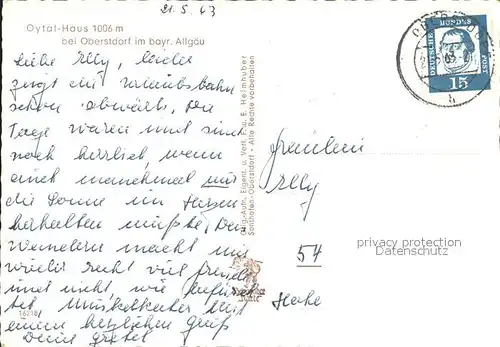 21.5.63
Oytal-Haus 1006 m
bei Oberstdorf im bayr. Allgäu
Liebe Elly, leider
zeigt die Urlaubsbahn
schon abwärts, die
Tage waren und sind
noch herrlich, wenn
auch manchmal nur
die Sonne im Herzen
herhalten mußte. Das
Wandern macht mir
wieder recht viel Freude
und nicht, wie befürch
tet Muskelkater. Mit
einem herzlichen Gruß
Deine Gretel
Orig.-Aufn. Eigent. u. Vertr. F. u. E. Heimhuber
Sonthofen-Oberstdorf - Alle Rechte vorbehalten
16218
DEUTSCHE BUNDES POST
15
Fräulein
Elly
54
privacy protection
Datenschutz